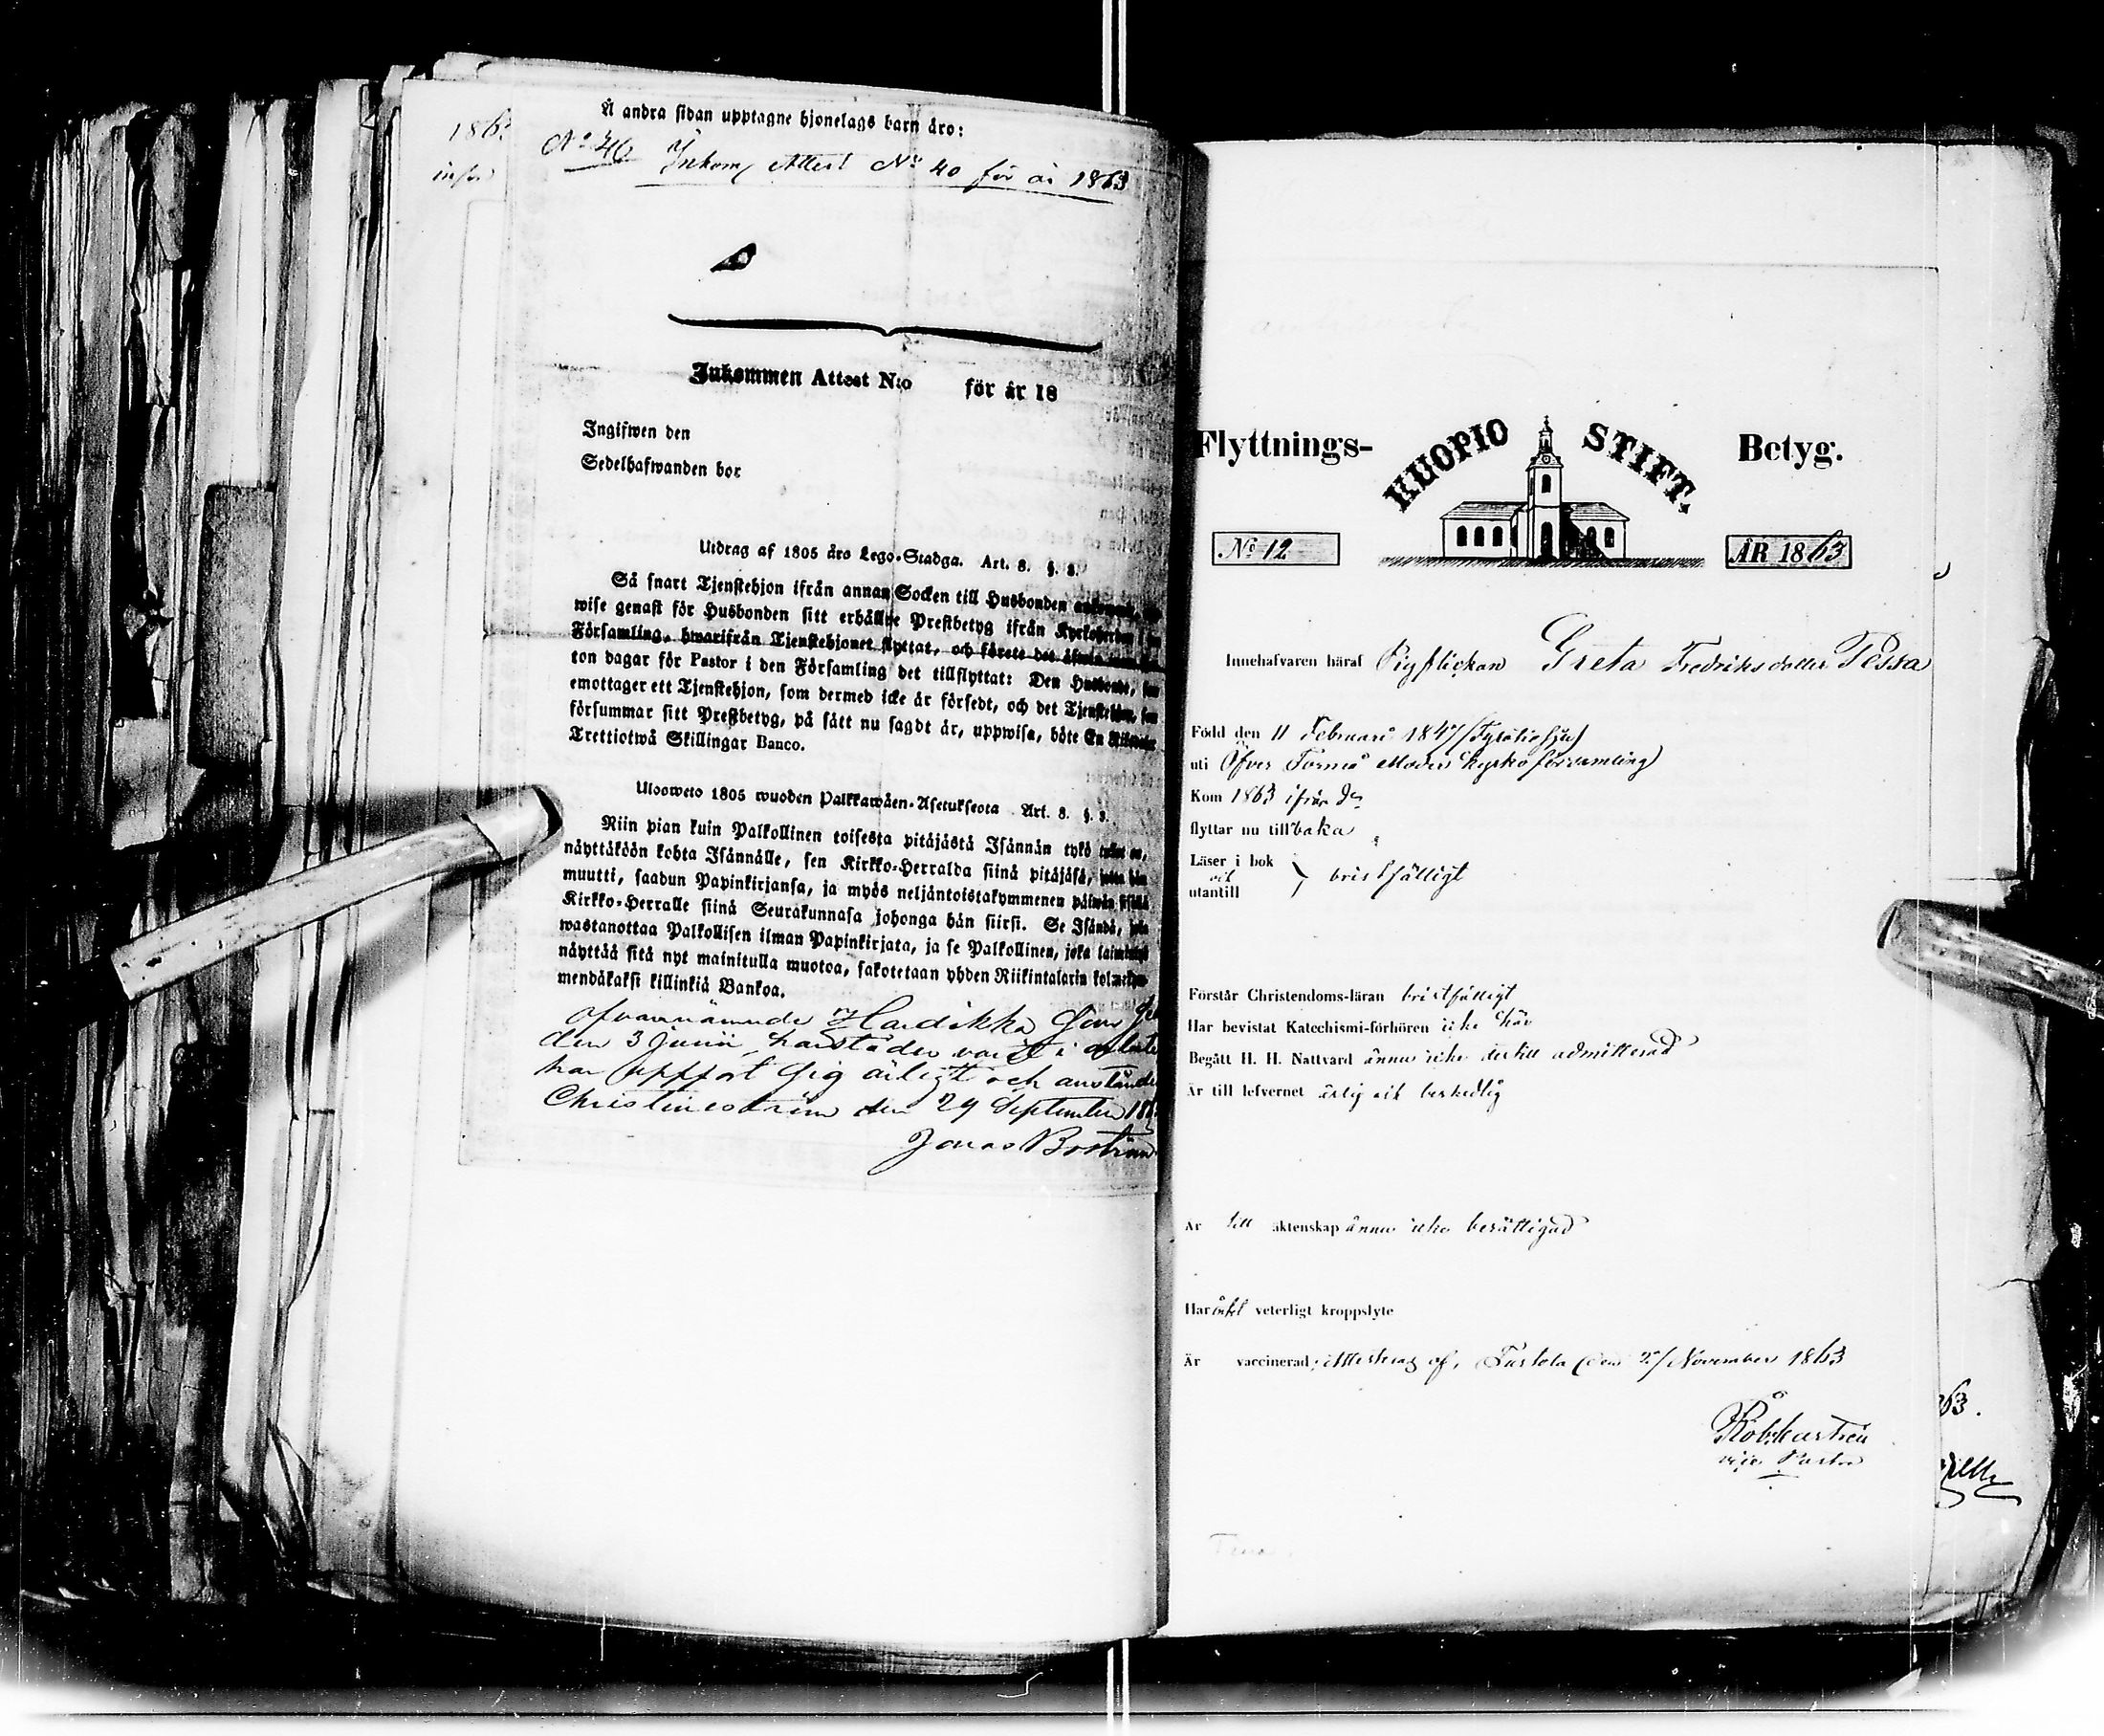 1863
Å andra sidan upptagne hjonelags barn äro:
No 46 Inkom, Attest No 40 för år 1863
Inkommen Attest N:o för år 18
Ingifwen den
Sedelhafwanden bor
Utdrag af 1805 års Lego-Stadga. Art. 8. §. 8.
Så snart Tjenstehjon ifrån annan Socken till Husbonden
wise genast för Husbonden sitt erhållne Prestbetyg ifrån Kyrkoherden i
Församling, hwarifrån Tjenstehjonet flyttat, och förete det
ton dagar för Pastor i den Församling det tillflyttat: Den Husbonde,
emottager ett Tjenstehjon, som dermed icke är försedt, och det Tjenstehjon,
försummar sitt Prestbetyg, på sätt nu sagdt är, uppwisa, böte En Riksdaler
Trettiotwå Skillingar Banco.
Ulosweto 1805 wuoden Palkkawäen-Asetuksesta Art. 8. §. 8.
Niin pian kuin Palkollinen toisesta pitäjästä Isännän tykö
näyttäköön kohta Isännälle, sen Kirkko-Herralda siinä pitäjäsä,
muutti, saadun Papinkirjansa, ja myös neljäntoistakymmenen päiwän sisällä
Kirkko-Herralle siinä Seurakunnasa johonga hän siirsi. Se Isändä,
wastanottaa Palkollisen ilman Papinkirjata, ja se Palkollinen, joka
näyttää sitä nyt mainitulla muotoa, sakotetaan yhden Riikintalarin
mendäkaksi killinkiä Bankoa.
ofvannämnde Hardikka
den 3 Junii härstädes varit i
har uppfört sig ärligt och
Christineström den 24 September
Jonas Boström
Flyttnings- KUOPIO STIFT. Betyg.
No 12 ÅR 1863
Innehafvaren häraf Pigflickan Greta Fredriksdotter Pessa
Född den 11 Februari 1847 (Fyratiosju)
uti Öfver Torneå Moderkyrko församling
Kom 1863 ifrån
flyttar nu till baka
Läser i bok
och
utantill } bristfälligt
Förstår Christendoms-läran bristfälligt
Har bevistat Katechismi-förhören icke här
Begått H. H. Nattvard ännu icke dertill admitterad
Är till lefvernet ärlig och beskedlig
Är till äktenskap ännu icke berättigad
Har intet veterligt kroppslyte
Är vaccinerad; Attesteras af, Turtola den November 1863
vice Pastor
63.